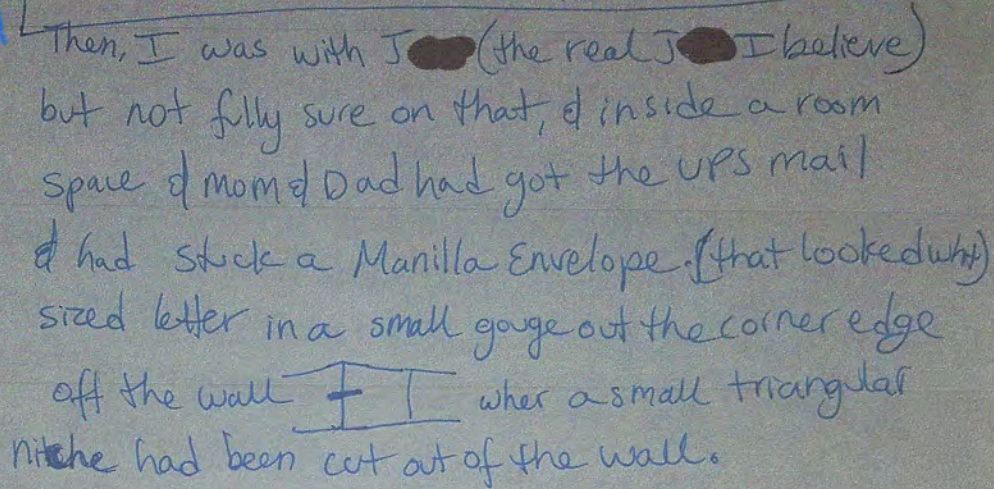 Then, I was with J (the real J I believe)
but not fully sure on that, & inside a room
space & mom & Dad had got the UPS mail
& had stuck a Manilla Envelope. (that looked wht)
sized letter in a small gouge out the corner edge
off the wall wher a small triangular
nitche had been cut out of the wall.